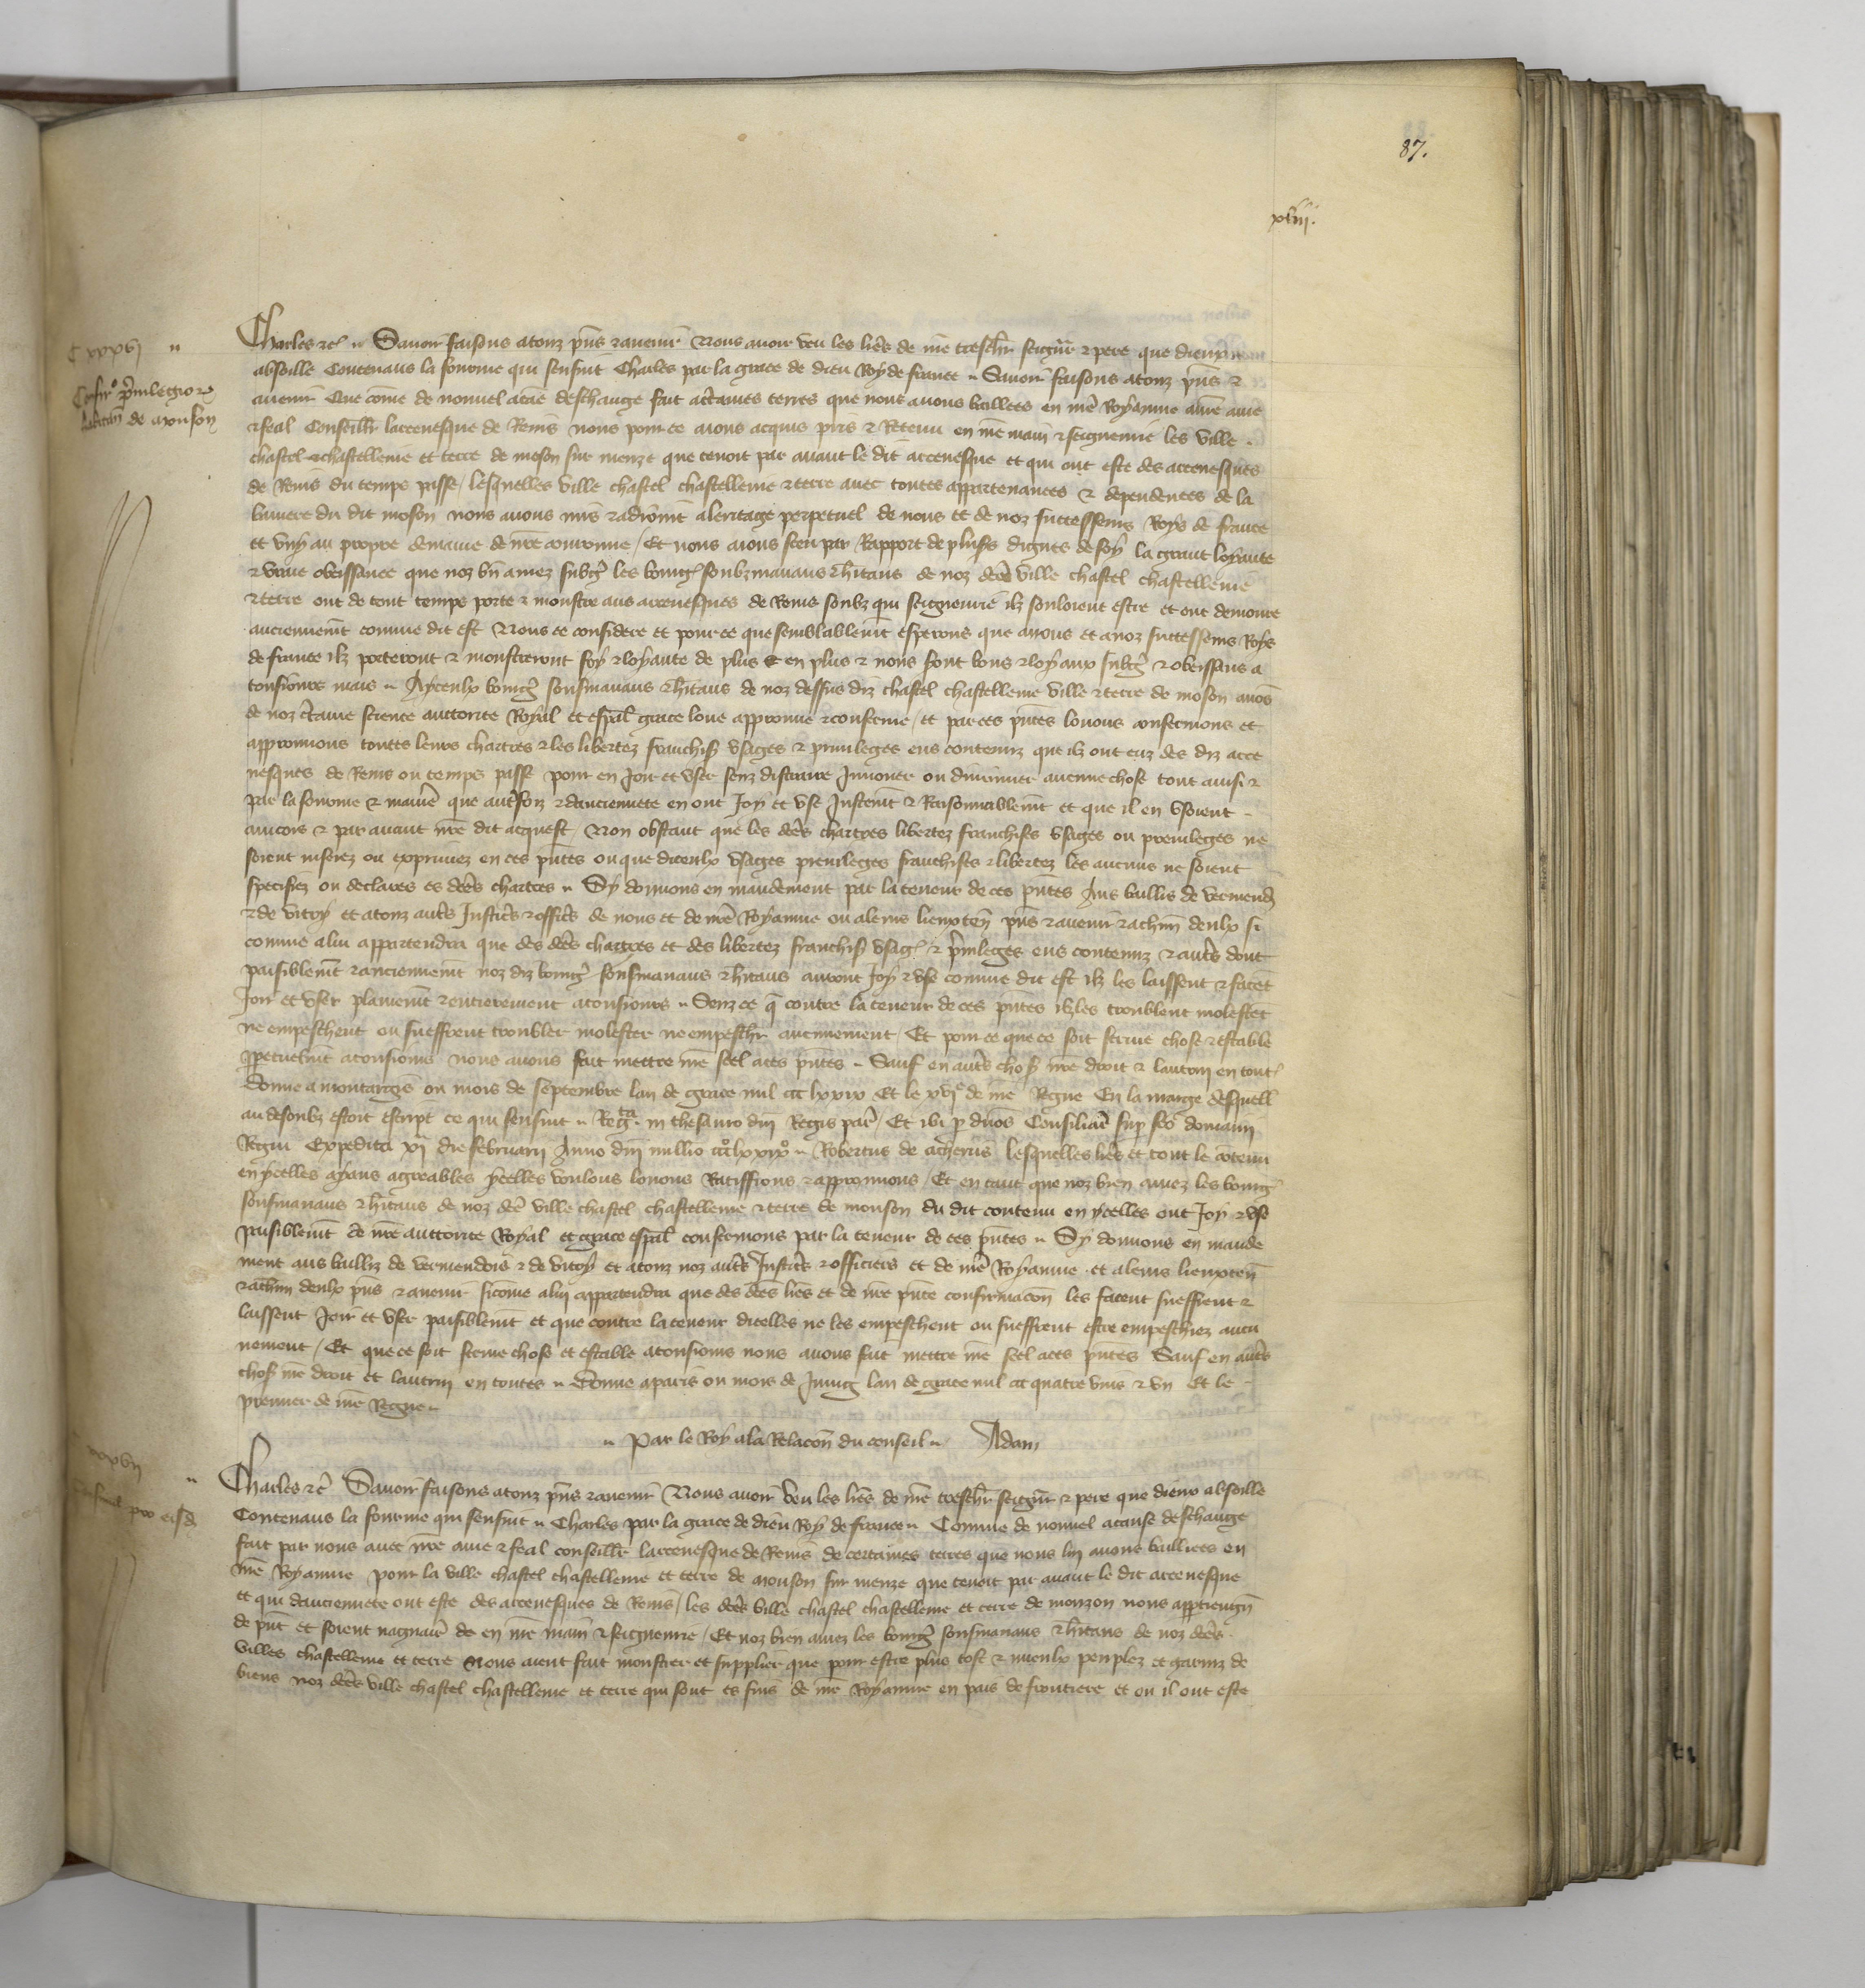 87.
xliii.
C xxxvj
Confir͛ pͥuilegiorͫ
habitan͛ de monson
Charles etc͛ Sauoir faisons a touz pn̄s et auenir Nous auoir veu les lr̄es de nr̄e treschr̄ seign̄r et pere que dieux
absoille Contenans la fourme qui sensuit Charles par la grace de dieu Roy de france Sauoir faisons a touz pn̄s et
auenir Que com̄e de nouuel a cāe deschange fait a cr̄taines terres que nous auons baillees en nr̄e Royaume a nr̄e ame
et feal Conseillr̄ larceuesque de Reins nous pour ce aions acquis pris et Retenu en nr̄e main et seigneurie les ville
chastel et chastellenie et terre de moson sur meuze que tenoit par auant le dit arceuesque et qui ont este des arceuesques
de Reins du temps passe / lesquelles ville chastel chastellenie et terre auec toutes appartenances et dependences de la
riuiere du dit moson nous auons mis et adioint a leritage perpetuel de nous et de noz successeurs Roys de france
et vny au propre demaine de nr̄e couronne / Et nous aions sceu par Rapport de plus͛s dignes de foy la grant loyaute
et vraie obeissance que noz bn̄ amez subg͛ les bourg͛ soubzmanans et hitans de noz dc̄es ville chastel chastellenie
et terre ont de tout temps porte et monstre aus arceuesques de Reins soubz qui seigneurie ilz souloient estre et ont demoure
anciennemt̄ comme dit est Nous ce considere et pour ce que semblablemt̄ esperons que a nous et a noz successeurs Roys
de france ilz porteront et monstreront foy et loyaute de plus et en plus et nous seront bons et loyaux subg͛ et obeissans a
tousiours mais A yceulx bourg͛ soubzmanans et hitans de noz dessus diz chastel chastellenie ville et terre de moson auōs
de noz cr̄taine science auctorite Royal et esp̄al grace loue approuue et conferme / et par ces pn̄tes louons confermons et
approuuons toutes leurs chartres et les libertez franchis͛ vsages et priuileges ens contenuz que ilz ont euz des diz arce
uesques de Reins ou temps passe pour en Joir et vser senz distraire Jnnouer ou diminuer aucune chose tout ainsi et
par la fourme et manie͛ que autr̄foiz et danciennete en ont Joy et vse Justemt̄ et Raisonnablemt̄ et que il en vsoient
ancois et par auant nr̄e dit acquest / Non obstant que les dc̄es chartres libertez franchises vsages ou preuileges ne
soient inserez ou exprimez en ces pn̄tes ou que diceulx vsages preuileges franchises et libertez les aucuns ne soient
specifiez ou declares es dc̄es chartres Sy donnons en mandement par la teneur de ces pn̄tes Aus baillis de vermend͛
et de vitry et a touz autr̄s Justic͛s et offic͛s de nous et de nr̄e Royaume ou a leurs lieuxten̄ pn̄s et auenir et a chūn deulx si
comme a lui appartendra que des dc̄es chartres et des libertez franchis͛ vsag͛ et pͥuileges ens contenuz et autr̄s dont
paisiblemt̄ et anciennemt̄ noz diz bourg͛ soubzmanans et hitans auront Joy et vse comme dit est ilz les laissent et facēt
Joir et vser plainemt̄ et entierement a tousiours Senz ce q̄ contre la teneur de ces pn̄tes ilz les troublent molestet
ne empeschent ou sueffrent troubler molester ne empeschr̄ aucunement / Et pour ce que ce soit ferme chose et estable
ꝑpetuelmt̄ a tousiours nous auons fait mettre nr̄e seel a ces pn̄tes Sauf en autr̄s chos͛ nr̄e droit et lautrui en tout͛
Donne a montargis ou mois de septembre lan de grace mil ccc lxxix Et le xvjᵉ de nr̄e Regne En la marge desquell͛
au desoubz estoit escript ce qui sensuit Regᵗᵃ in thesauro dn̄i Regis par͛ / Et ibi ꝑ dn̄os Consiliar͛ suꝑ fco͛ domanii
Regni Expedita xj die februarij Anno dn̄i millio cccᵒ lxxixᵒ Robertus de acheriis lesquelles lr̄es et tout le cōtenu
en ycelles ayans agreables ycelles voulons louons Ratiffions et approuuons / Et en tant que noz bien amez les bourg͛
soubzmanans et hitans de noz dc̄e ville chastel chastellenie et terre de monson du dit contenu en ycelles ont Joy et vse
paisiblemt̄ de nr̄e auctorite Royal et grace esp̄al confermons par la teneur de ces pn̄tes Sy donnons en mande
ment aus bailliz de vermendois et de vitry et a touz noz autr̄s Justic͛s et officiers et de nr̄e Royaume et a leurs lieuxten̄
et a chūn deulx pn̄s et auenir si com̄e a luy appartendra que des dc̄es lr̄es et de nr̄e pn̄te confirmacōn les facent sueffrent et
laissent Joir et vser paisiblemt̄ et que contre la teneur dicelles ne les empeschent ou sueffrent estre empeschiez aucu
nement / Et que ce soit ferme chose et estable a tousiours nous auons fait mettre nr̄e seel a ces pn̄tes Sauf en autr̄s
chos͛ nr̄e droit et lautruy en toutes Donne a paris ou mois de Juing lan de grace mil ccc quatre vins et vn Et le
premier de nr̄e Regne
Par le Roy a la Relacōn du conseil Adam
xxxvij
pro eisd͛
Charles etc͛ Sauoir faisons a touz pn̄s et auenir Nous auoir veu les lr̄es de nr̄e treschr̄ seign̄r et pere que dieux absoille
Contenans la fourme qui sensuit Charles par la grace de dieu Roy de france Comme de nouuel a cause deschange
fait par nous auec nr̄e ame et feal conseillr̄ larceuesque de Reins de certaines terres que nous lui auons baillees en
nr̄e Royaume pour la ville chastel chastellenie et terre de mouson sur meuze que tenoit par auant le dit arceuesque
et qui danciennete ont este des arceuesques de Reins / les dc̄es ville chastel chastellenie et terre de mouzon nous apꝑtiengn̄
de pn̄t et soient nagair͛ de en nr̄e main et seigneurie / Et noz bien amez les bourg͛ soubzmanans et hitans de noz dc̄es
villes chastellenie et terre Nous aient fait monstrer et supplier que pour estre plus tost et mieulx peuplez et garniz de
biens noz dc̄es ville chastel chastellenie et terre qui sont es fins de nr̄e Royaume en pais de frontiere et ou il ont este